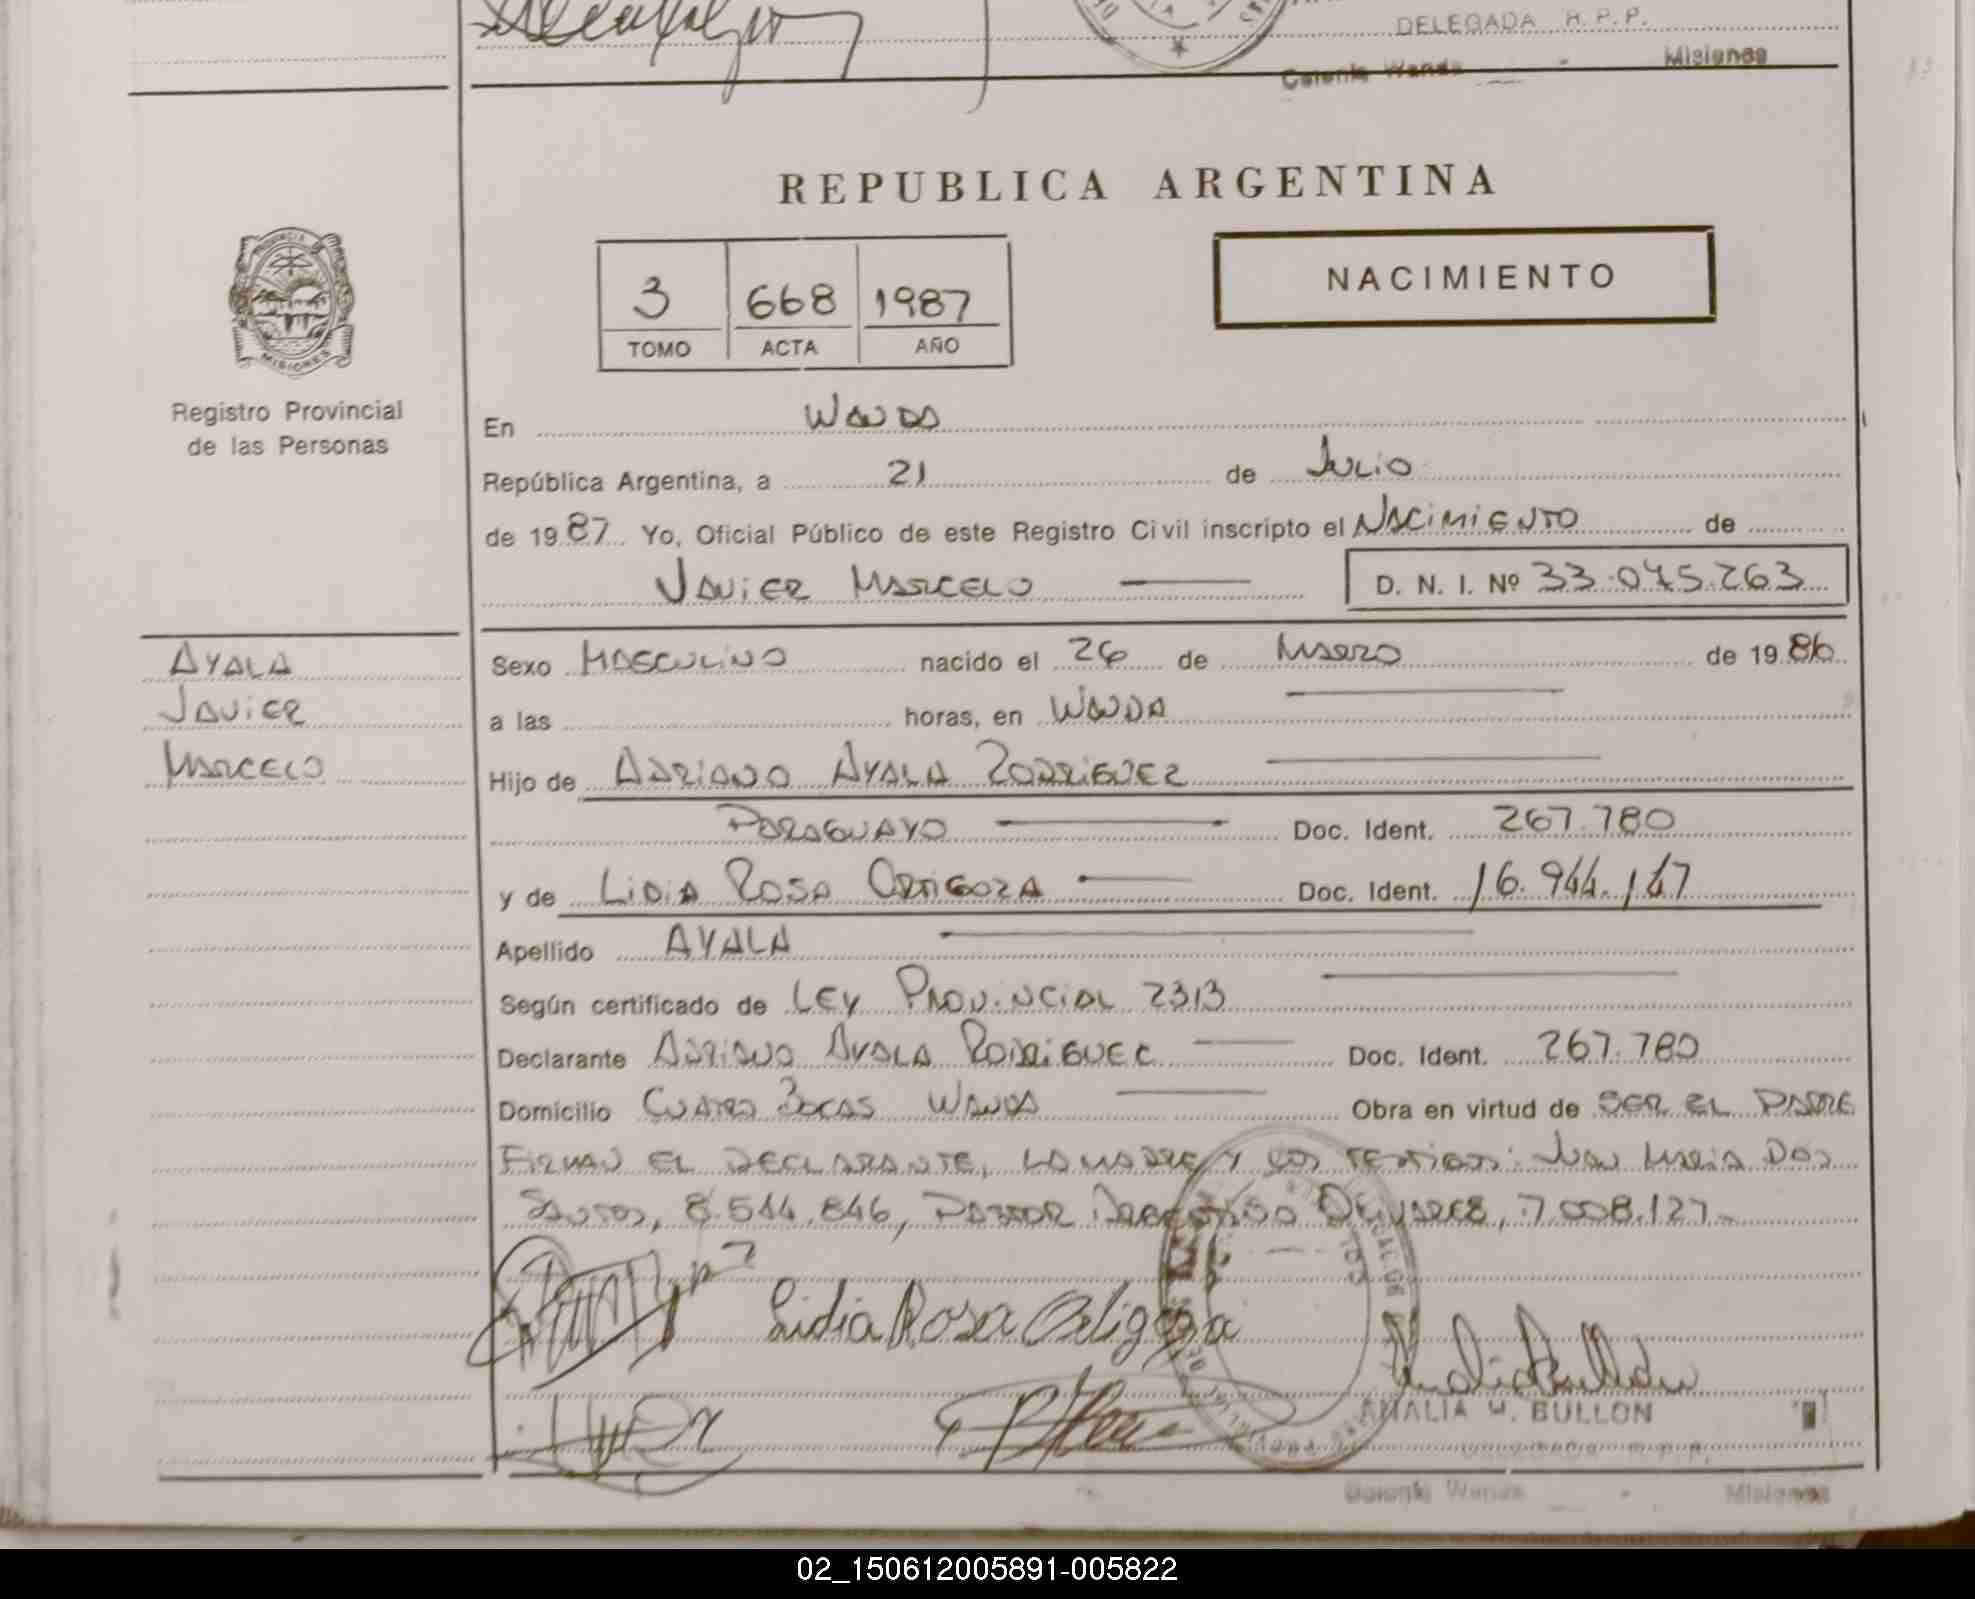 DELEGADA R. P. P.
Colonia Wanda Misiones
REPUBLICA ARGENTINA
PROVINCIA
MISIONES
Registro Provincial
de las Personas
3 668 1987
TOMO ACTA AÑO
NACIMIENTO
En WANDA
República Argentina, a 21 de JULIO
de 1987 Yo, Oficial Público de este Registro Civil inscripto el NACIMIENTO de
JAVIER MARCELO D. N. I. Nº 33.045.263
AYALA
JAVIER
MARCELO
Sexo MASCULINO nacido el 26 de MARZO de 1986
a las horas, en WANDA
Hijo de ADRIANO AYALA RODRIGUEZ
PARAGUAYO Doc. Ident. 267.780
y de LIDIA ROSA ORTIGOZA Doc. Ident. 16.944.147
Apellido AYALA
Según certificado de LEY PROVINCIAL 2313
Declarante ADRIANO AYALA RODRIGUEZ Doc. Ident. 267.780
Domicilio CUATRO BOCAS WANDA Obra en virtud de SER EL PADRE
FIRMAN EL DECLARANTE, LA MADRE Y LOS TESTIGOS: JUAN MARIA DOS
SANTOS, 8.544.846, PASTOR OLIVARES, 7.008.127-
Lidia Rosa Ortigoza
AMALIA M. BULLON
DELEGADA R. P. P.
Colonia Wanda Misiones
02_150612005891-005822